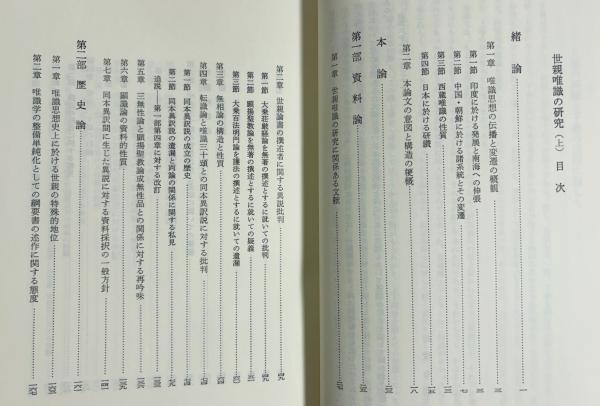 世親唯識の研究（上） 目次
緒論
第一章 唯識思想の伝播と変遷の概観
第一節 印度に於ける発展と南海への伸張
第二節 中国・朝鮮に於ける諸系統とその変遷
第三節 西蔵唯識の性質
第四節 日本に於ける研鑽
第二章 本論文の意図と構造の梗概
本論
第一部 資料論
第一章 世親唯識の研究に関係ある文献
第二章 世親論書の撰述者に関する異説批判
第一節 大乗荘厳経論を無著の撰述とするに就いての批判
第二節 顕揚聖教論を無著の撰述とするに就いての疑義
第三節 大乗百法明門論を護法の撰述とするに就いての遺漏
第三章 無相論の構造と性質
第四章 転識論と唯識三十頌との同本異訳説に対する批判
第一節 同本異訳説の成立の歴史
第二節 同本異訳説の遺漏と両論の関係に関する私見
追説―第一部第四章に対する改訂
第五章 三無性論と顕揚聖教論成無性品との関係に対する再吟味
第六章 顕識論の資料的性質
第七章 同本異訳間に生じた異説に対する資料採択の一般方針
第二部 歴史論
第一章 唯識思想史上に於ける世親の特殊的地位
第二章 唯識学の整備単純化としての綱要書の述作に関する態度